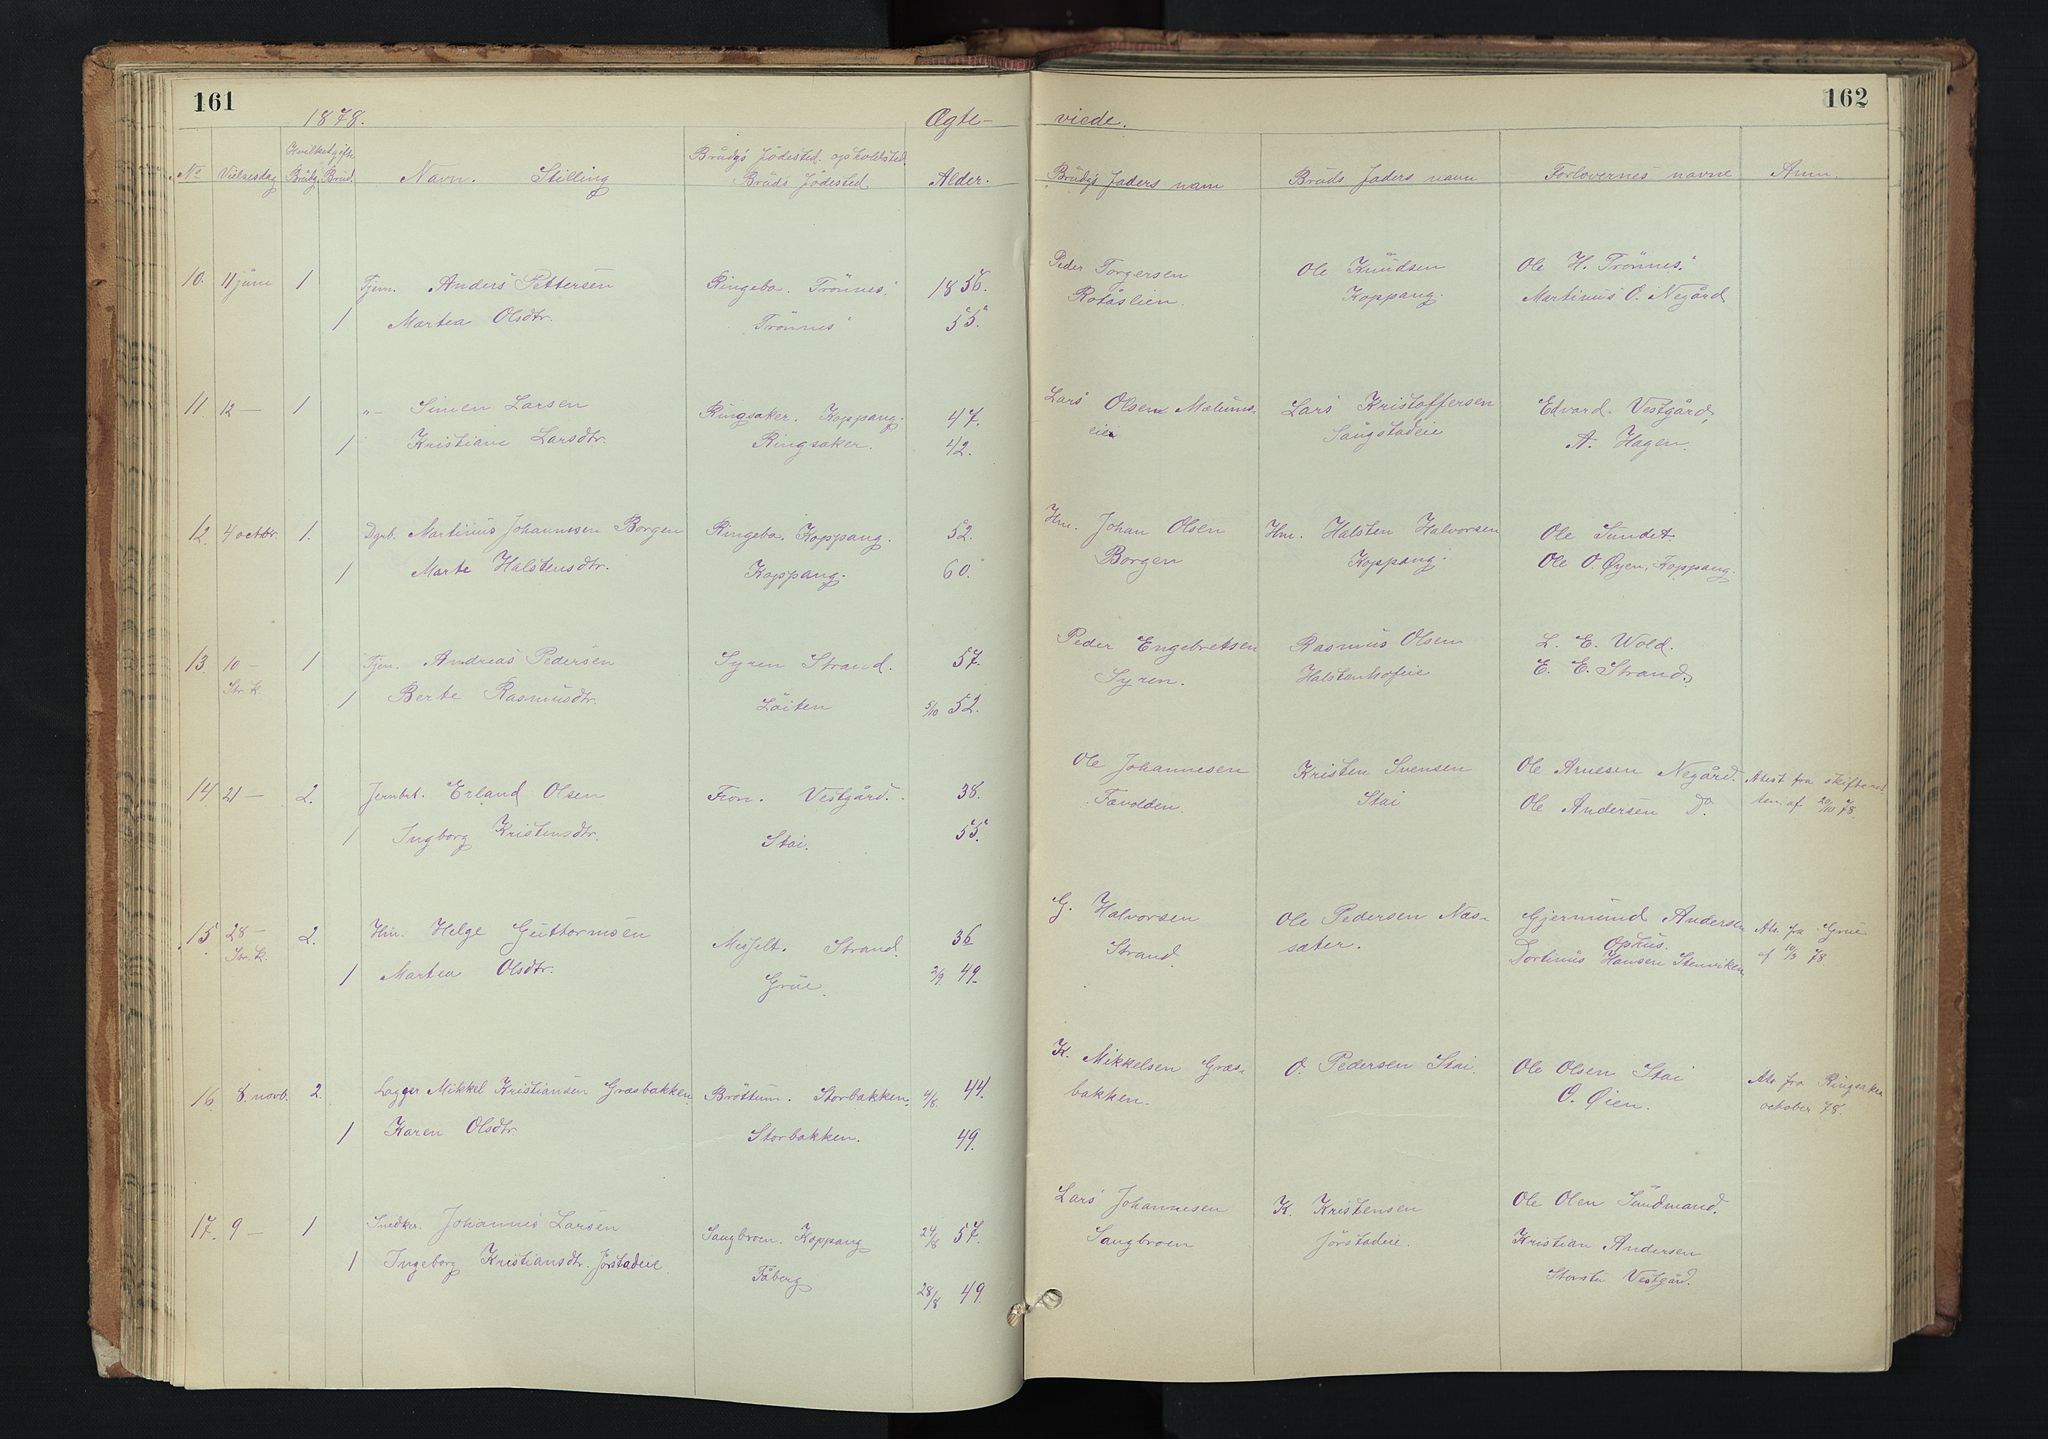 161
162
1878.
Ægte-
viede.
Hvilket gifte
Brudgs Födested. opholdsted.
No Vielsesdag Brudg. Brud. Navn. Stilling Bruds Födested. Alder. Brudgs Faders navn Bruds Faders navn Forlovernes navne Anm.
10. 11 june 1 Tjen. Anders Pettersen Ringebo. Trönnes. 1856. Peder Torgersen Ole Knudsen Ole H. Trönnes.
Rotåslien. Koppang. Martinus O. Negård
1 Martea Olsdtr. Trönnes 55.
11. 12 – 1 "- Simen Larsen Ringsaker. Koppang. 47. Lars Olsen Malums- Lars Kristoffersen Edvard Vestgård,
eie Saugstadeie A. Hagen.
1 Kristiane Larsdtr. Ringsaker. 42.
12. 4 octbr. 1. Dgrb. Martinus Johannesen Borgen Ringebo. Koppang. 52. Hm. Johan Olsen Hm. Halsten Halvorsen Ole Sundet.
Borgen Koppang. Ole O. Øyen, Koppang.
1 Marte Halstensdtr. Koppang. 60.
13. 10 – 1 Tjen. Andreas Pedersen Syren Strand. 57. Peder Engebretsen Rasmus Olsen L. E. Wold.
Str. k. Syren. Halstenhofeie E. E. Strand.
1 Berte Rasmusdtr. Löiten 5/10 52.
14 21 – 2. Jernbat. Erland Olsen Fron. Vestgård. 38. Ole Johannesen Kristen Svensen Ole Arnesen Negård. Atest fra skifteret-
Fævolden. Stai Ole Andersen Do. ten af 20/10 78.
1 Ingborg Kristensdtr. Stai. 55.
15. 28 – 2. Hm. Helge Guttormsen Misjelt. Strand. 36 G. Halvorsen Ole Pedersen Næs- Gjermund Andersen Ats. fra Grue
Str. k. Strand. sæter. Ophus. af 10/3 78
Dortinus Hansen Stenviken
1 Martea Olsdtr. Grue. 2/9. 49.
16. 8. novb. 2. Lagger Mikkel Kristiansen Græsbakken. Bröttum. Storbakken. 4/8. 44. K. Mikkelsen Græs- O. Pedersen Stai. Ole Olsen Stai Ats. fra Ringsaker
bakken. O. Øien. october 78.
1 Karen Olsdtr. Storbakken. 49.
17. 9 – 1 Snedker. Johannes Larsen Saugbroen. Koppang 24/8 57. Lars Johannesen K. Kristensen Ole Olen Sundmand.
Saugbroen Jörstadeie. Kristian Andersen
1 Ingeborg Kristiansdtr. Jörstadeie Fåberg 28/8 49. Vestgård.